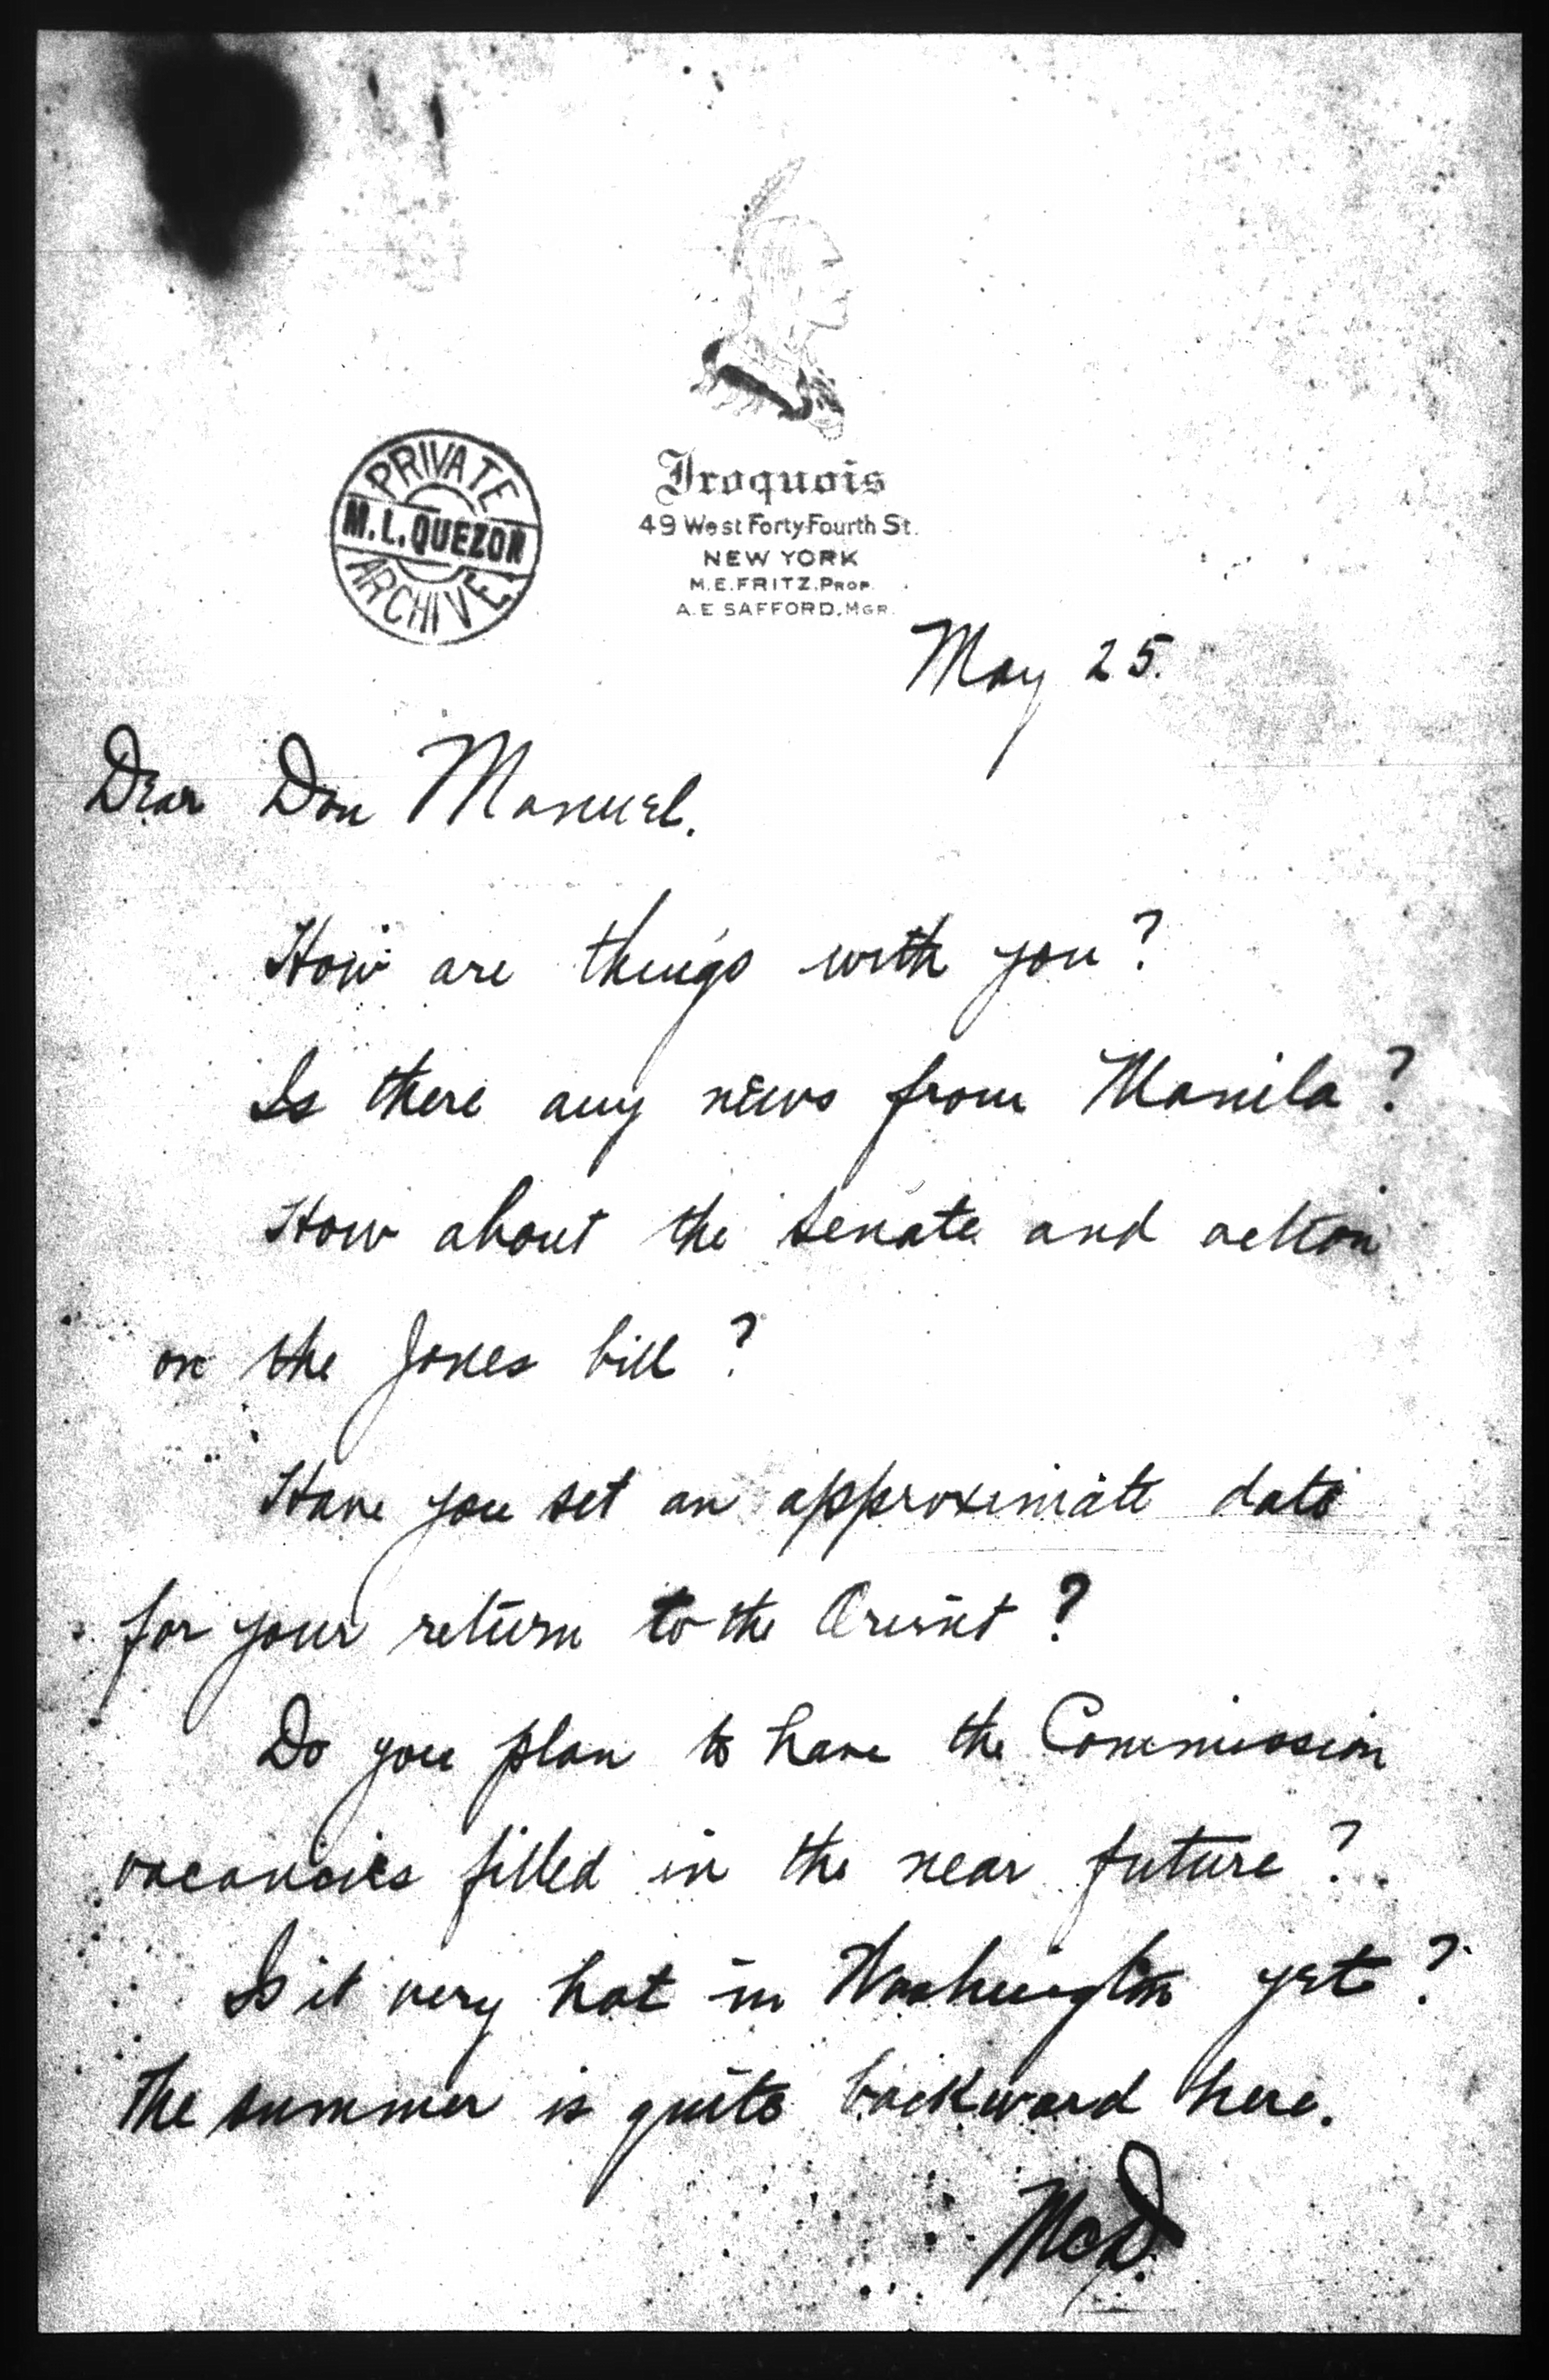 PRIVATE
M.L.QUEZON
ARCHIVE
Iroquois
49 West Forty-Fourth St.
NEW YORK
M.E.FRITZ.PROP.
A.E SAFFORD.MGR.
May 25.
Dear Don Manuel.
How are things with you?
Is there any news from Manila?
How about the Senate and action
on the Jones bill?
Have you set an approximate date
for your return to the Orient?
Do you plan to have the Commission
vacancies filled in the near future?
Is it very hot in Washington yet?
The summer is quite backward here.
McD.